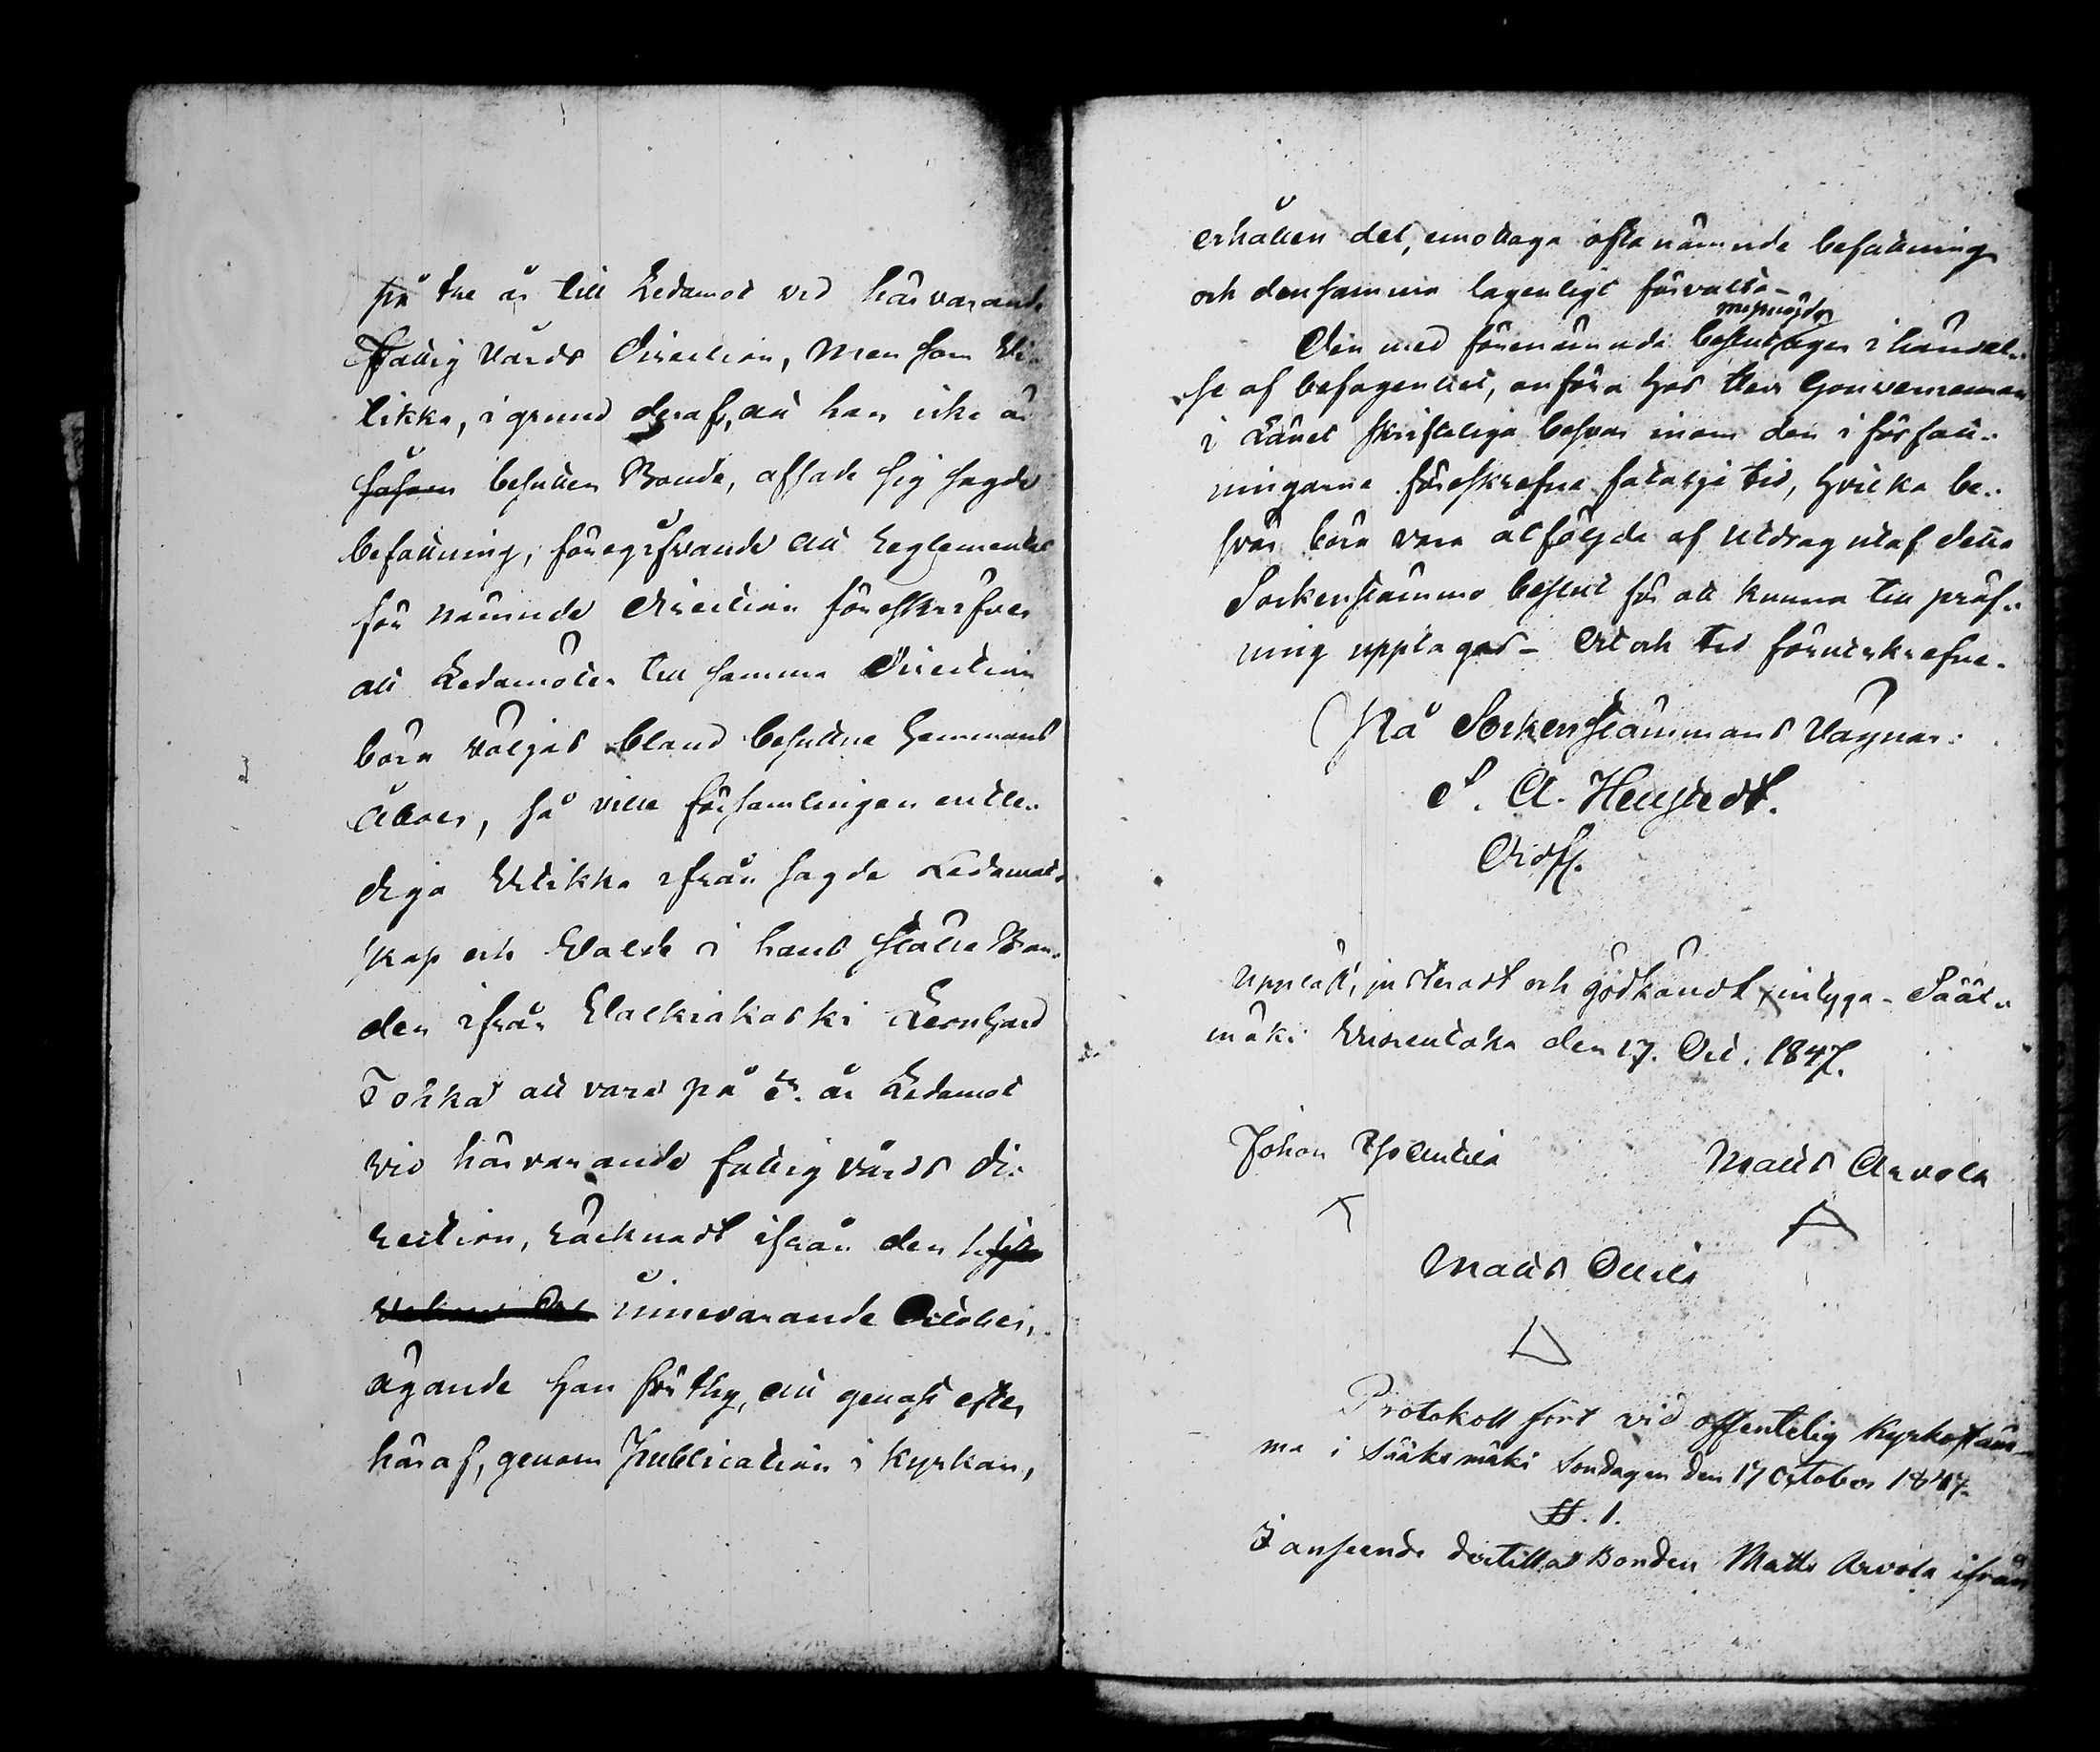 på tre år till Ledamot vid härvarande
Fattig Vårds Direction, men som Uo-
tikka, i grund deraf, att han icke är
såsom besutten Bonde, afsade sig sagde
befattning, föregifvande att Reglementet
för nämnde Direction föreskrifver
att Ledamöter till samma Direction
böra väljas bland besuttne Hemmans
Åboer, så ville församlingen entle-
diga Uotikka ifrån sagde Ledamot-
skap och valde i hans ställe Bon-
den ifrån Valkiakoski Leonhard
Tokka att vara på år Ledamot
vid härvarande fattig vårds Di-
rection, räknadt ifrån den
innevarande October,
ägande han för thy, att genast efter
häraf, genom Publication i Kyrkan,
erhållen del, emottaga ofta nämnde befattning
och densamma lagenligt förvalta-
missnöjde
Den med förenämnde beslut eger i händel-
se af befogenhet, anföra hos Herr Gouverneuren
i Länet skrifteliga besvär inom den i författ-
ningarne föreskrefne fatalje tid, hvilka be-
svär böra vara åtföljde af utdrag utaf detta
Sockenstämmo beslut för att kunna till pröf-
ning upptagas- Ort och tid förutskrefne.
På Sockenstämmans Vägnar:
S. A. Hellstedt.
Ordf.
Uppläst, justeradt och godkändt, intyga- Sääx-
mäki Vuorentaka den 17. Oct. 1847.
Johan Matts Arvola
Matts Ollila
Protokoll fört vid offentelig Kyrkostäm-
ma i Sääksmäki Söndagen den 17 October 1847.
§. 1.
I anseende dertill at Bonden Matts Arvola ifrån